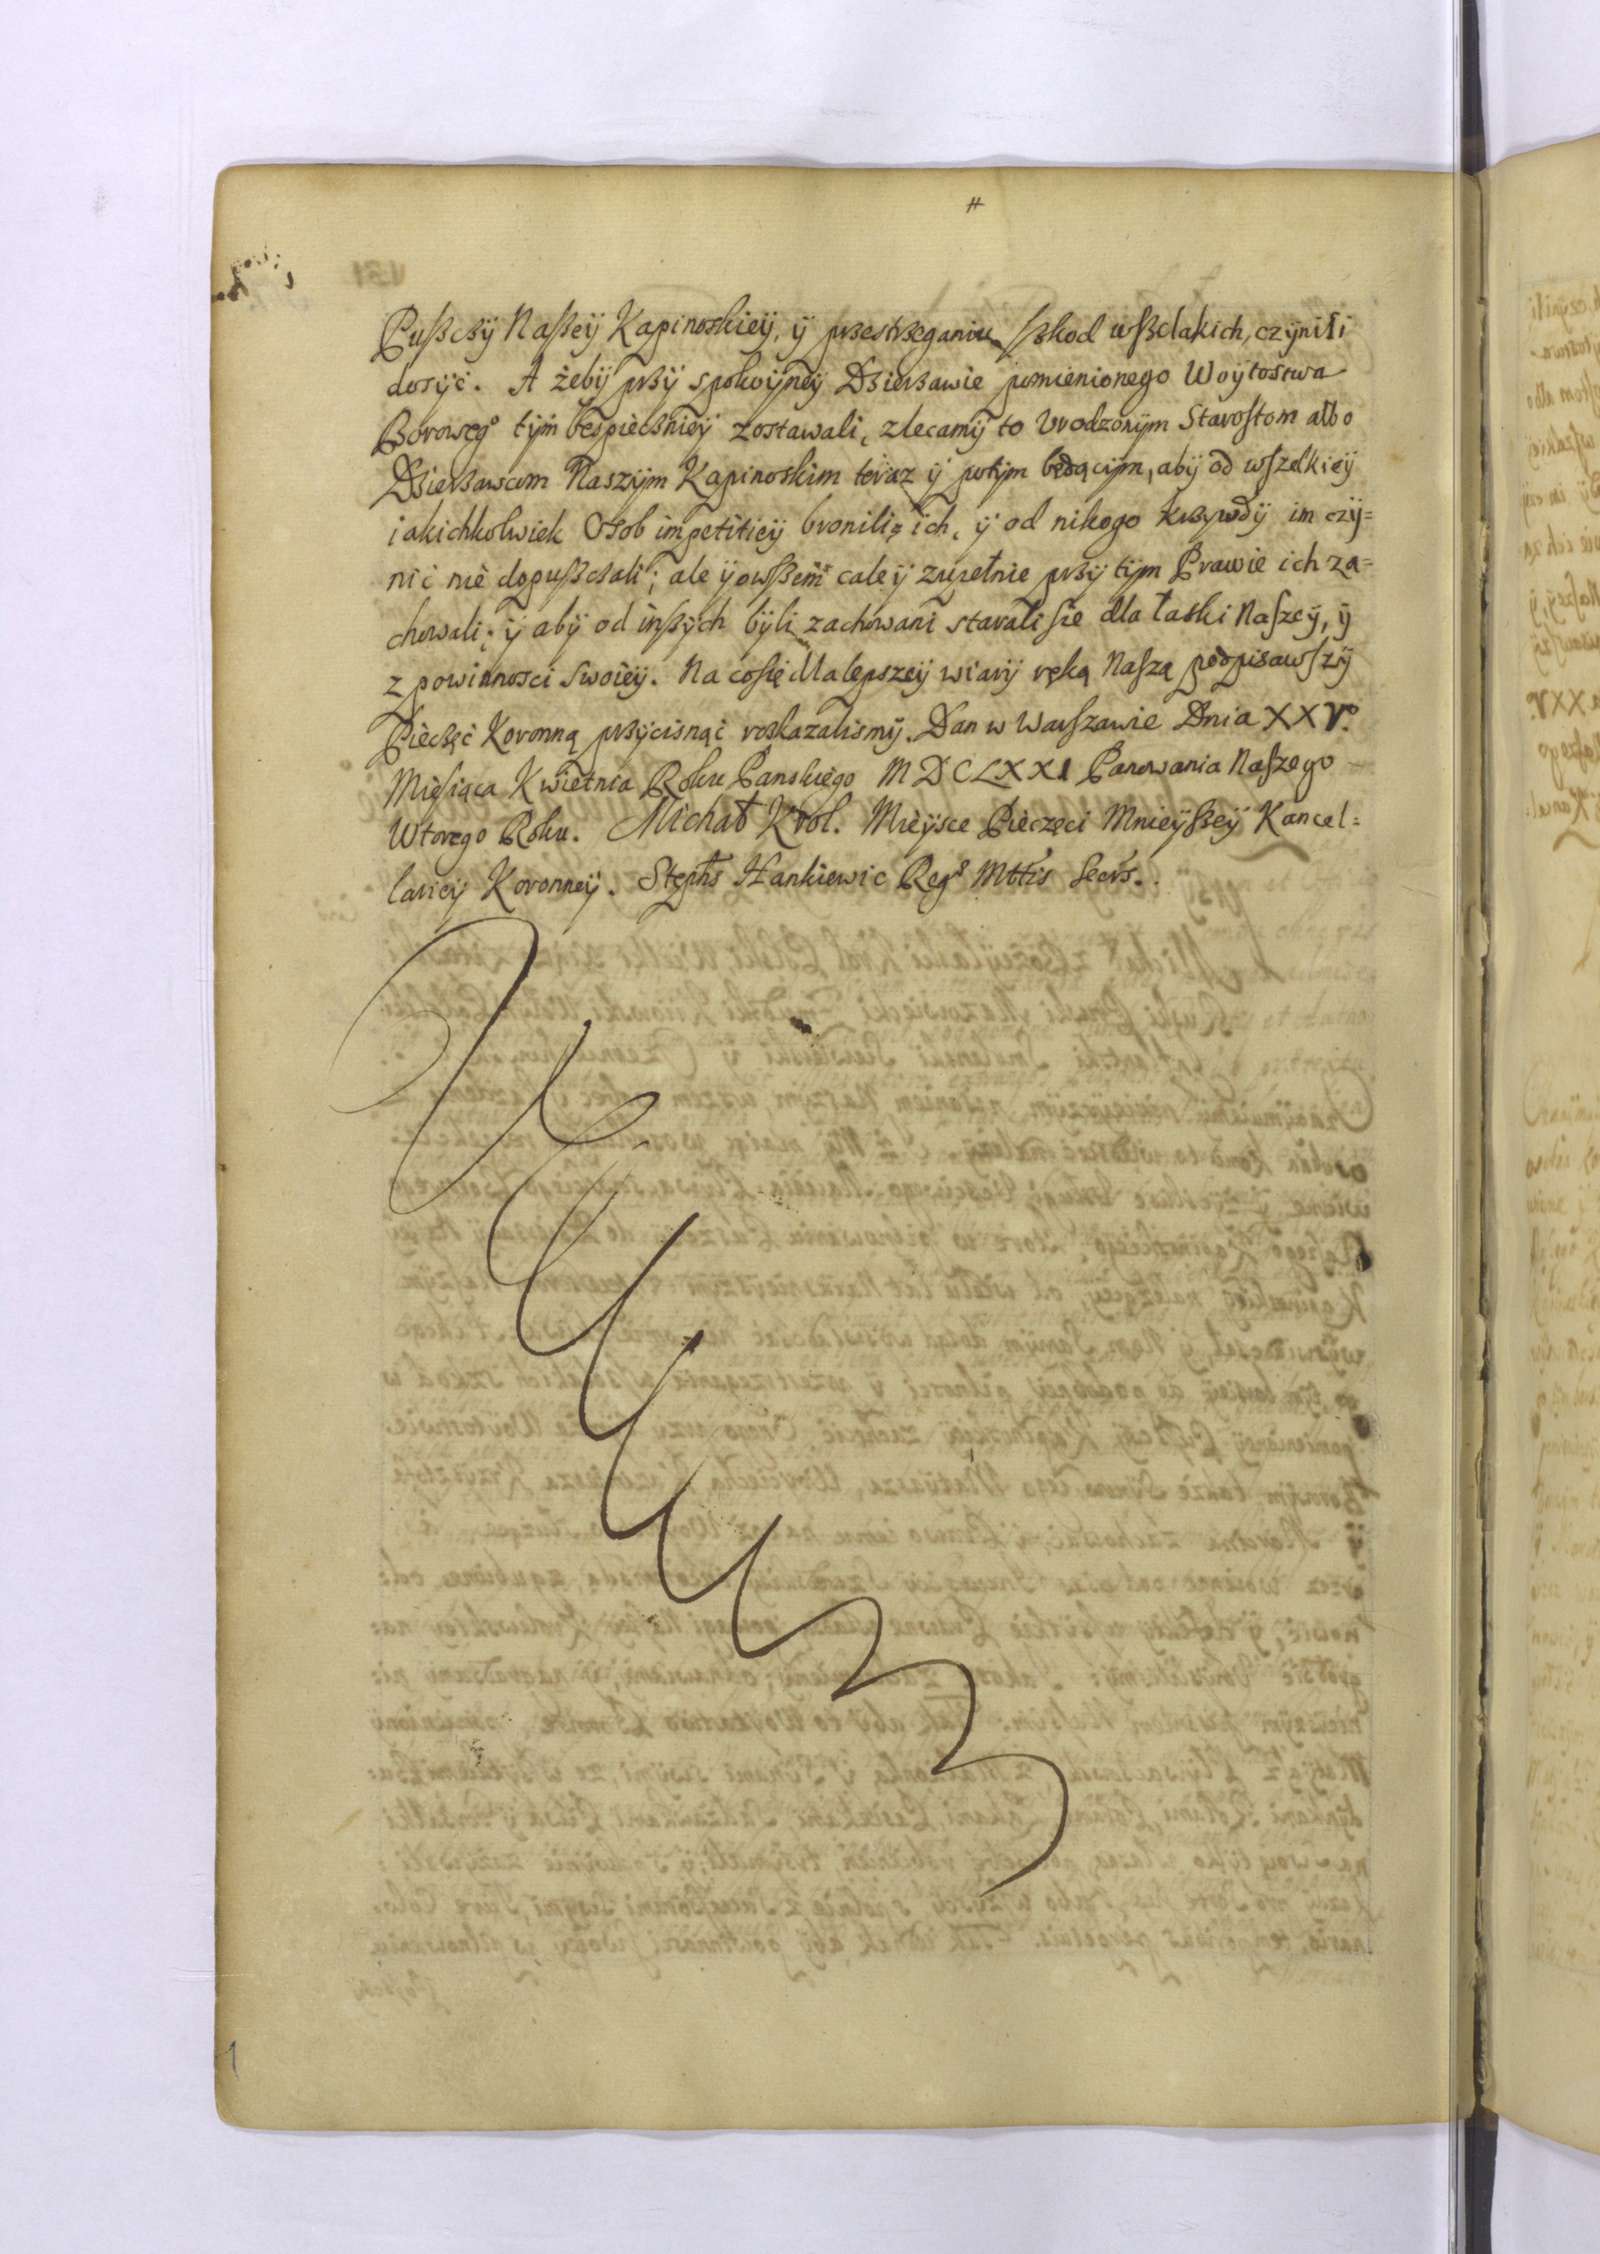 Pußczÿ Naßeÿ Kapinoskieÿ, ÿ przestrzeganiu ſzkod wßelakich, czÿnili
dosÿć. A żebÿ przÿ spokoÿneÿ Dzierżawie pomienionego Woÿtostwa
Borowegº tÿm bespieczniey zostawali, zlecamÿ to Vrodzonÿm Staroſtom albo
Dzierżawcom Naszÿm Kapinoskim teraz ÿ potÿm będącÿm, abÿ od wſzelkieÿ
iakichkolwiek Osob impetitieÿ bronili ich, ÿ od nikogo krzywdÿ im czÿ=
nić nie dopußczali; ale ÿ owßem cale ÿ zupełnie przÿ tÿm Prawie ich za=
chowali; ÿ abÿ od inßÿch bÿli zachowani starali ſie dla łaski Naſzeÿ, ÿ
z powinności swoieÿ. Na co ſię dla lepszeÿ wiarÿ ręką Naſzą podpisawſzÿ
Pieczęć Koronną przÿcisnąć roskazaliśmÿ. Dan w Warſzawie Dnia XXVº
Mieſiąca Kwietnia Roku Panskiego MDCLXXI Panowania Naſzego
Wtorego Roku. Michał Krol. Mieÿsce Pieczęci Mnieÿßeÿ Kancel=
larieÿ Koronneÿ. Stephs Hankiewic Regº Mttis Secrs.